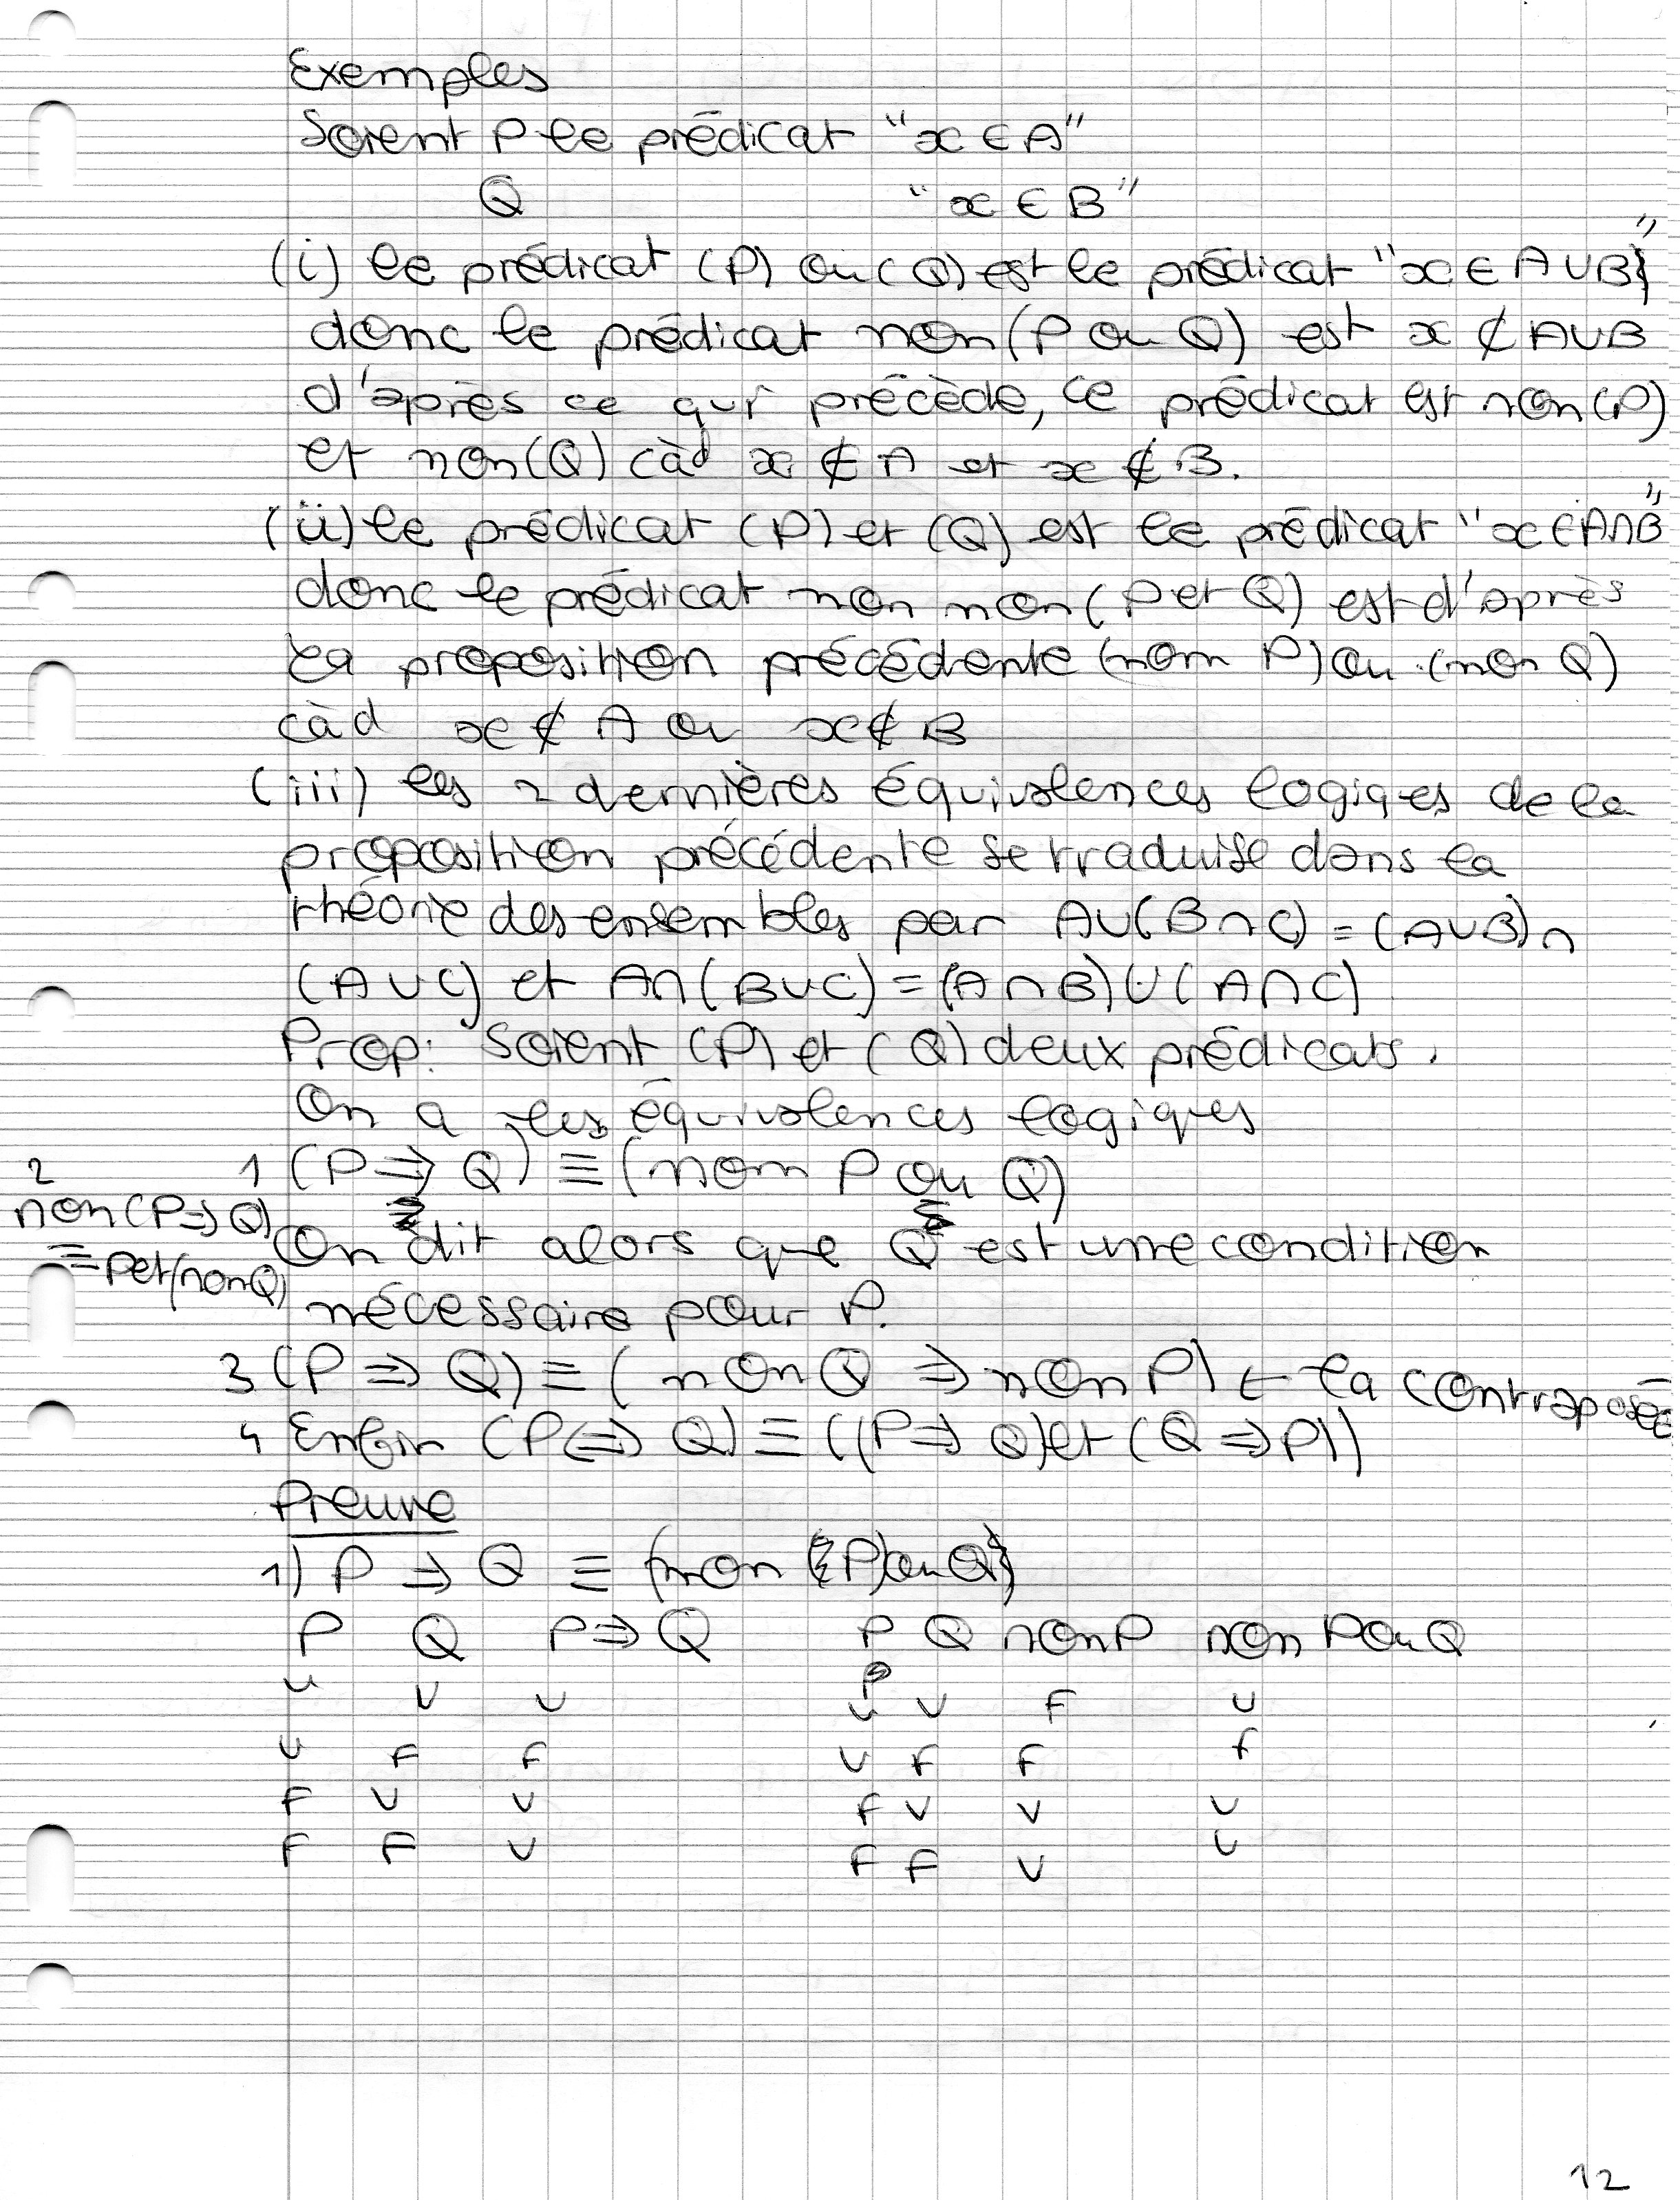 Exemples
Soient P le prédicat "x ∈ A"
Q "x ∈ B"
(i) le prédicat (P) ou (Q) est le prédicat "x ∈ A ∪ B"
donc le prédicat non (P ou Q) est x ∉ A ∪ B
d'après ce qui précède, ce prédicat est non (P)
et non (Q) càd x ∉ A et x ∉ B.
(ii) le prédicat (P) et (Q) est le prédicat "x ∈ A ∩ B"
donc le prédicat non non (P et Q) est d'après
la proposition précédente (nom P) ou (non Q)
càd x ∉ A ou x ∉ B
(iii) les 2 dernières équivalences logiques de la
proposition précédente se traduise dans la
théorie des ensembles par A ∪ (B ∩ C) = (A ∪ B) ∩
(A ∪ C) et A ∩ (B ∪ C) = (A ∩ B) ∪ (A ∩ C)
Prop: Soient (P) et (Q) deux prédicats.
On a les équivalences logiques
1 (P ⇒ Q) ≡ (nom P ou Q)
2
non (P ⇒ Q)
≡ P et (non Q)
On dit alors que Q est une condition
nécessaire pour P.
3 (P ⇒ Q) ≡ (non Q ⇒ non P) ← la contraposée
4 Enfin (P ⇔ Q) ≡ ((P ⇒ Q) et (Q ⇒ P))
Preuve
1) P ⇒ Q ≡ (non (P) ou Q)
P Q P ⇒ Q P Q non P non P ou Q
V V V V V F V
V F F V F F F
F V V F V V V
F F V F F V V
12